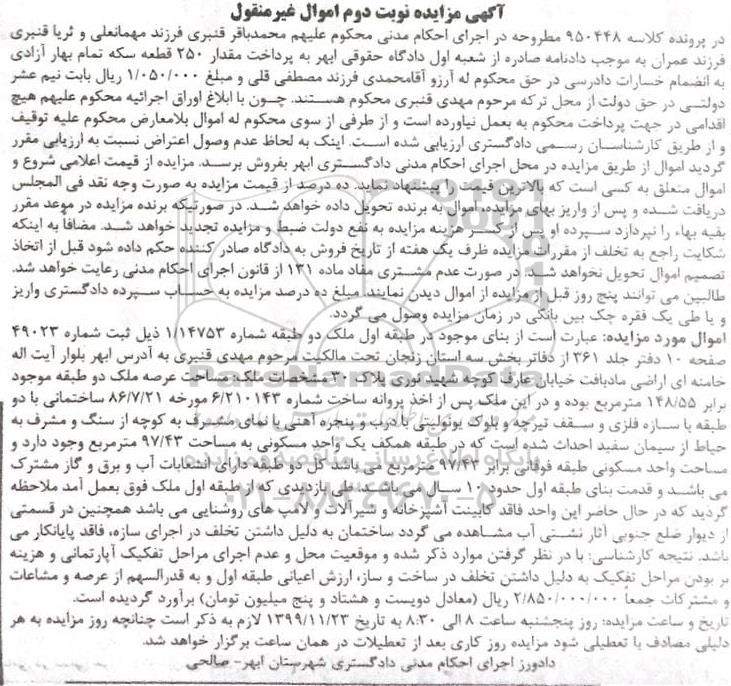 آگهی مزایده نوبت دوم اموال غیرمنقول
در پرونده کلاسه ۹۵۰۴۴۸ مطروحه در اجرای احکام مدنی محکوم علیهم محمدباقر قنبری فرزند مهمانعلی و ثریا قنبری
فرزند عمران به موجب دادنامه صادره از شعبه اول دادگاه حقوقی ابهر به پرداخت مقدار ۲۵۰ قطعه سکه تمام بهار آزادی
به انضمام خسارات دادرسی در حق محکوم له آرزو آقامحمدی فرزند مصطفی قلی و مبلغ ۱/۰۵۰/۰۰۰ ریال بابت نیم عشر
دولتی در حق دولت از محل ترکه مرحوم مهدی قنبری محکوم هستند. چون با ابلاغ اوراق اجرائیه محکوم علیهم هیچ
اقدامی در جهت پرداخت محکوم به بعمل نیاورده است و از طرفی از سوی محکوم له اموال بلامعارض محکوم علیه توقیف
و از طریق کارشناسان رسمی دادگستری ارزیابی شده است. اینک به لحاظ عدم وصول اعتراض نسبت به ارزیابی مقرر
گردید اموال از طریق مزایده در محل اجرای احکام مدنی دادگستری ابهر بفروش برسد. مزایده از قیمت اعلامی شروع و
اموال متعلق به کسی است که بالاترین قیمت را پیشنهاد نماید. ده درصد از قیمت مزایده به صورت وجه نقد فی المجلس
دریافت شده و پس از واریز بهای مزایده اموال به برنده تحویل داده خواهد شد. در صورتیکه برنده مزایده در موعد مقرر
بقیه بهاء را نپردازد سپرده او پس از کسر هزینه مزایده به نفع دولت ضبط و مزایده تجدید خواهد شد. مضافاً به اینکه
شکایت راجع به تخلف از مقررات مزایده ظرف یک هفته از تاریخ فروش به دادگاه صادر کننده حکم داده شود قبل از اتخاذ
تصمیم اموال تحویل نخواهد شد. در صورت عدم مشتری مفاد ماده ۱۳۱ از قانون اجرای احکام مدنی رعایت خواهد شد.
طالبین می توانند پنج روز قبل از مزایده از اموال دیدن نمایند. مبلغ ده درصد مزایده به حساب سپرده دادگستری واریز
و یا طی یک فقره چک بین بانکی در زمان مزایده وصول می گردد.
اموال مورد مزایده: عبارت است از بنای موجود در طبقه اول ملک دو طبقه شماره ۱/۱۴۷۵۳ ذیل ثبت شماره ۴۹۰۲۳
صفحه ۱۰ دفتر جلد ۳۶۱ از دفاتر بخش سه استان زنجان تحت مالکیت مرحوم مهدی قنبری به آدرس ابهر بلوار آیت اله
خامنه ای اراضی مادبافت خیابان عارف کوچه شهید نوری پلاک ۳۰ مشخصات ملک: مساحت عرصه ملک دو طبقه موجود
برابر ۱۴۸/۵۵ مترمربع بوده و در این ملک پس از اخذ پروانه ساخت شماره ۶/۲۱۰۱۴۳ مورخه ۸۶/۷/۲۱ ساختمانی با دو
طبقه با سازه فلزی و سقف تیرچه و بلوک یونولیتی با درب و پنجره آهنی با نمای مشرف به کوچه از سنگ و مشرف به
حیاط از سیمان سفید احداث شده است که در طبقه همکف یک واحد مسکونی به مساحت ۹۷/۴۳ مترمربع وجود دارد و
مساحت واحد مسکونی طبقه فوقانی برابر ۹۷/۴۳ مترمربع می باشد کل دو طبقه دارای انشعابات آب و برق و گاز مشترک
می باشد و قدمت بنای طبقه اول حدود ۱۰ سال می باشد. طی بازدیدی که از طبقه اول ملک فوق بعمل آمد ملاحظه
گردید که در حال حاضر این واحد فاقد کابینت آشپزخانه و شیرآلات و لامپ های روشنایی می باشد همچنین در قسمتی
از دیوار ضلع جنوبی آثار نشتی آب مشاهده می گردد ساختمان به دلیل داشتن تخلف در اجرای سازه، فاقد پایانکار می
باشد. نتیجه کارشناسی: با در نظر گرفتن موارد ذکر شده و موقعیت محل و عدم اجرای مراحل تفکیک آپارتمانی و هزینه
بر بودن مراحل تفکیک به دلیل داشتن تخلف در ساخت و ساز، ارزش اعیانی طبقه اول و به قدرالسهم از عرصه و مشاعات
و مشترکات جمعاً ۲/۸۵۰/۰۰۰/۰۰۰ ریال (معادل دویست و هشتاد و پنج میلیون تومان) برآورد گردیده است.
تاریخ و ساعت مزایده: روز پنجشنبه ساعت ۸ الی ۸:۳۰ به تاریخ ۱۳۹۹/۱۱/۲۳ لازم به ذکر است چنانچه روز مزایده به هر
دلیلی مصادف با تعطیلی شود مزایده روز کاری بعد از تعطیلات در همان ساعت برگزار خواهد شد.
دادورز اجرای احکام مدنی دادگستری شهرستان ابهر- صالحی
ParsNamadData
پایگاه اطلاع رسانی مناقصه و مزایده
۰۲۱-۸۸۳۴۹۶۷۰-۵